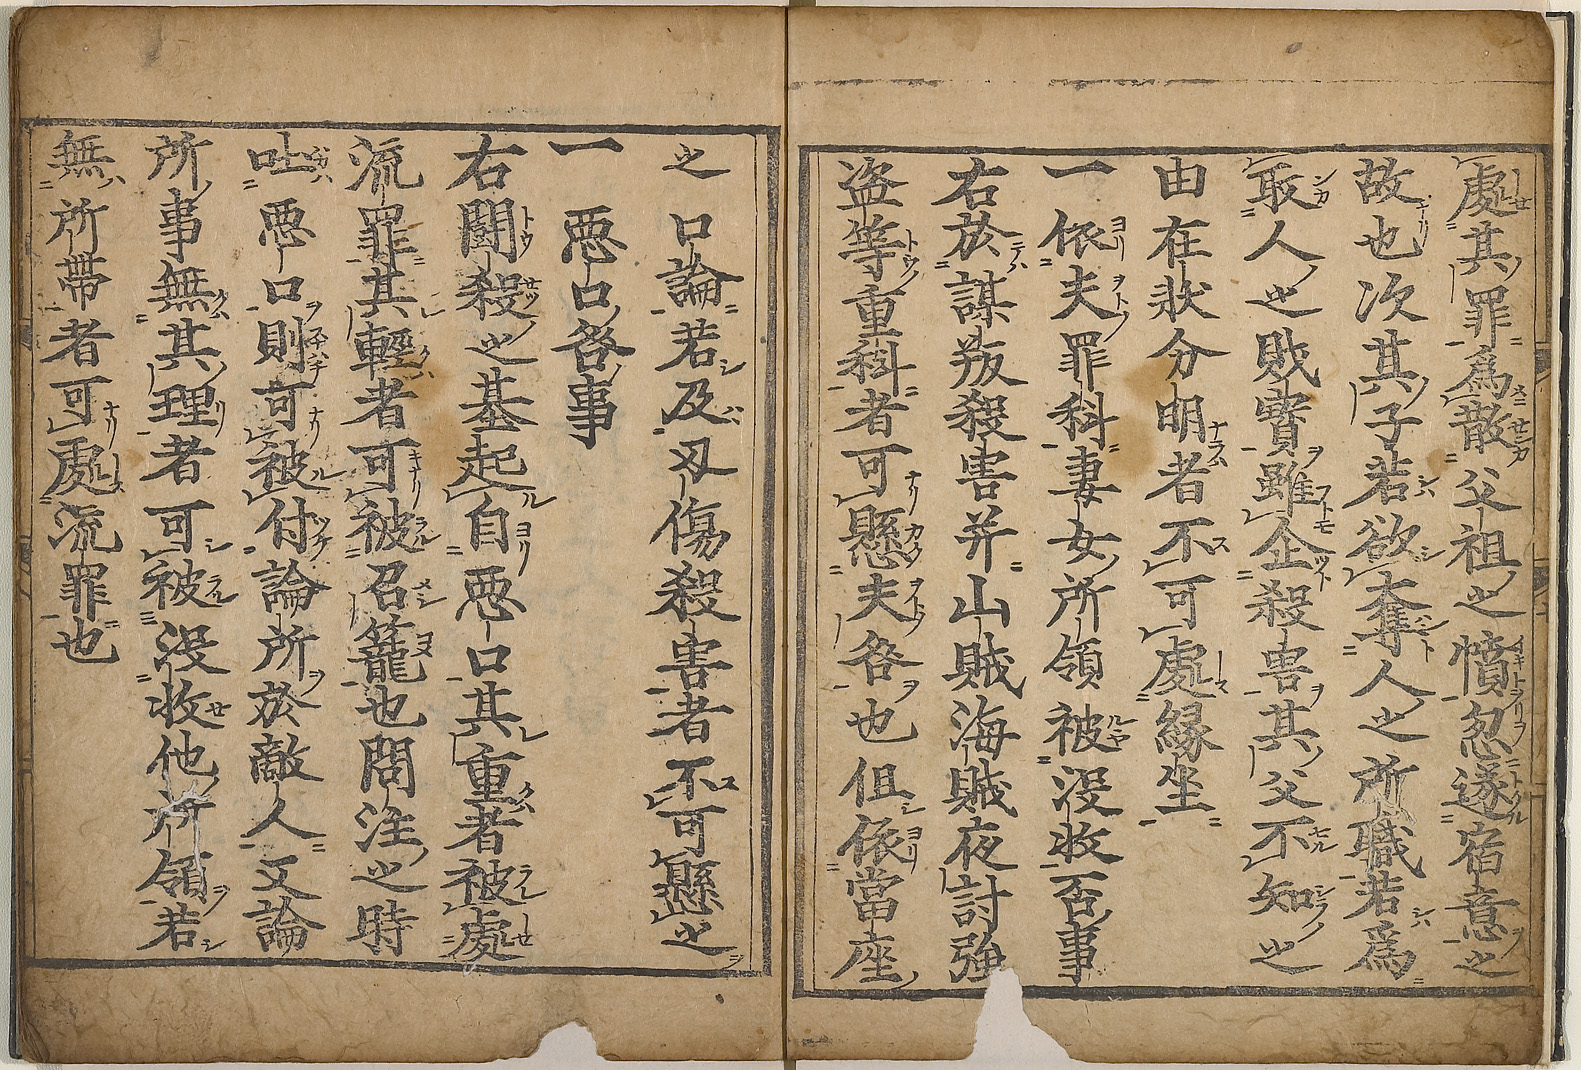 處其罪為散父祖之憤忽遂宿意之
故也次其子若欲奪人之所職若為
取人之財寶雖企殺害其父不知之
由在狀分明者不可處縁坐
一依夫罪科妻女所領被没收否事
右於謀叛殺害并山賊海賊夜討強
盗等重科者可懸夫咎也但依當座
之口論若及刄傷殺害者不可懸之
一 惡口咎事
右鬪殺之基起自惡口其重者被處
流罪其輕者可被召籠也問注之時
吐惡口則可被付論所於敵人又論
所事無其理者可被没收他所領若
無所帶者可處流罪也